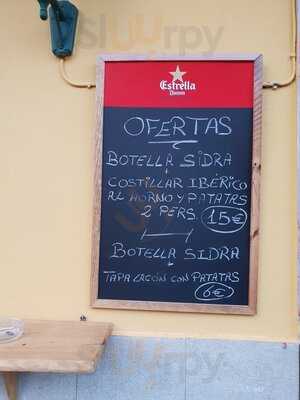 Estrella
Damm
OFERTAS
BOTELLA SIDRA
+
COSTILLAR IBÉRICO
AL HORNO Y PATATAS
2 PERS. 15€
BOTELLA SIDRA
+
TAPA LACÓN CON PATATAS
6€